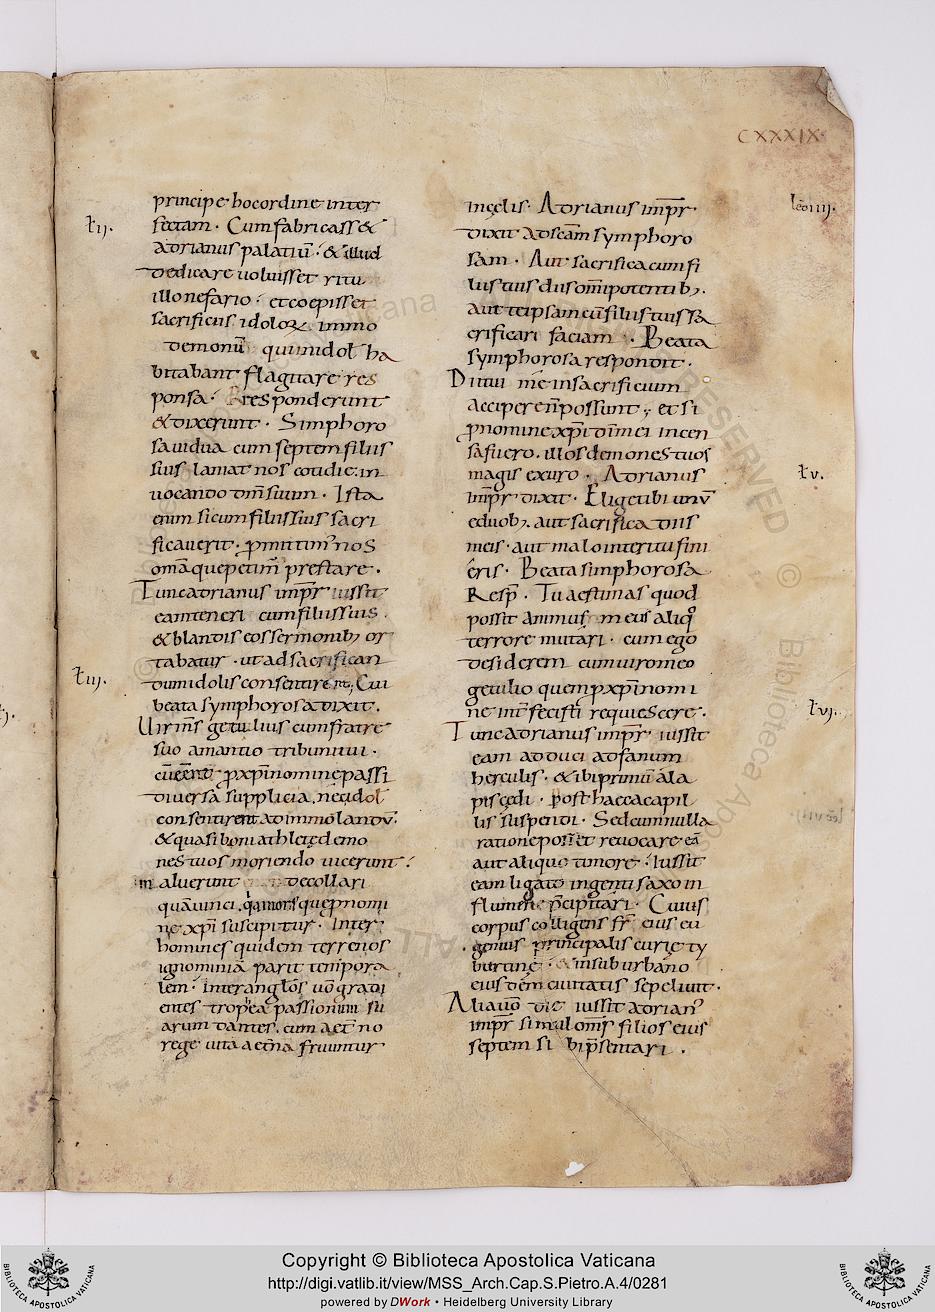 CXXXIX
principe hocordine inter
fectam · Cum fabricass&
Adrianus palatiū · & illud
dedicare voluisset ritu
illo nefario · et coepisset
sacrificiis idoloꝝ immo
demonū qui in idol ha
bitabant flagitare res
ponsa · Responderunt
& dixerunt · Simphoro
sa vidua cum septem filiis
suis laniat nos cotidie in
vocando dm̄ suum · Ista
enim si cum filiis suis sacri
ficaverit · promittim' nos
om̄a que petim' prestare ·
Tunc adrianus imp̄r iussit
eam teneri cum filiis suis ·
& blandis eos sermonib; or
tabatur · ut ad sacrifican
dum idolis consentirent; Cui
beata symphorosa dixit ·
Uir ms̄ getulius cum fratre
suo amantio tribuni tui ·
pro xp̄i nomine passi
diversa supplicia, ne idol
consentirent ad immolandū ·
& quasi boni athletę demo
nes tuos moriendo vicerunt ·
maluerunt decollari
quā vinci quępnomi
ne xp̄i suscipitur · Inter
homines quidem terrenos
ignominiā parit tempora
lem · inter anglōs vō gradi
entes tropea passionum su
arum dantes, cum aet̄no
rege vita aet̄na fruuntur
in cęlis · Adrianus imp̄r ·
dixit ad scām symphoro
sam · Aut sacrifica cum fi
liis tuis diis omīpotentib; ·
aut te ipsam cū filiis tuis sa
crificari faciam · Beata
symphorosa respondit ·
Dii tui me in sacrificium
accipere n̄ possunt ; et si
pro nomine xp̄i dn̄i mei incen
sa fuero, illos demones tuos
magis exuro · Adrianus
imp̄r dixit · Elige tibi unū
e duob; aut sacrifica diis
meis · aut malo interitu fini
eris · Beata simphorosa
Resp̄ · Tu aestimas quod
possit animus meus aliq°
terrore mutari · cum ego
desiderem cum viro meo
getulio quem p xp̄i nomi
ne interfecisti requiescere ·
Tunc adrianus imp̄r · iussit
eam ad duci ad fanum
herculis · & ibi primū ala
pis cędi · post haec a capil
lis suspendi · Sed cum nulla
ratione potuisset revocare eā
aut aliquo timore · Iussit
eam ligato ingenti saxo in
flumine p̄cipitari · Cuius
corpus colligens fr̄ eius eu
genius principalis curię ty
burtinę · in suburbano
eiusdem civitatis sepelivit ·
Alia vō die iussit adrian'
imp̄r simul om̄s filios eius
septem sibi p̄sentari ·
leō iiii.
ŧ ii.
ŧ iii.
ŧ v.
ŧ vi.
Copyright © Biblioteca Apostolica Vaticana
http://digi.vatlib.it/view/MSS_Arch.Cap.S.Pietro.A.4/0281
powered by DWork • Heidelberg University Library
BIBLIOTECA APOSTOLICA VATICANA
BIBLIOTECA APOSTOLICA VATICANA